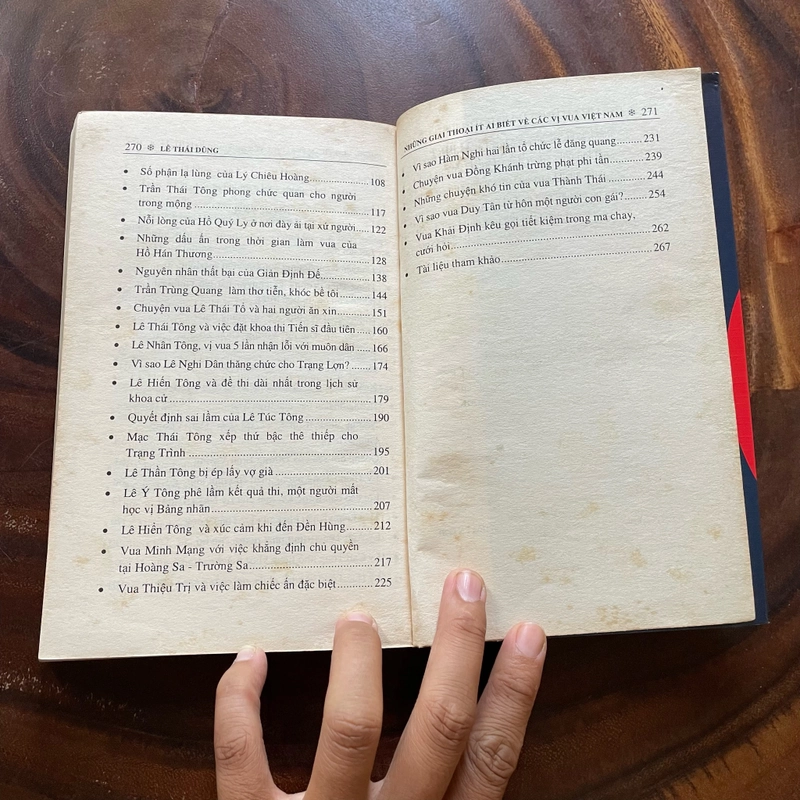 270 ❄ LÊ THÁI DŨNG
• Số phận lạ lùng của Lý Chiêu Hoàng.................... 108
• Trần Thái Tông phong chức quan cho người
trong mộng ............................................ 117
• Nỗi lòng của Hồ Quý Ly ở nơi đày ải tại xứ người...... 122
• Những dấu ấn trong thời gian làm vua của
Hồ Hán Thương......................................... 128
• Nguyên nhân thất bại của Giản Định Đế................. 138
• Trần Trùng Quang làm thơ tiễn, khóc bề tôi............ 144
• Chuyện vua Lê Thái Tổ và hai người ăn xin............. 151
• Lê Thái Tông và việc đặt khoa thi Tiến sĩ đầu tiên .... 160
• Lê Nhân Tông, vị vua 5 lần nhận lỗi với muôn dân ..... 166
• Vì sao Lê Nghi Dân thăng chức cho Trạng Lợn? ........ 174
• Lê Hiến Tông và đề thi dài nhất trong lịch sử
khoa cử ............................................... 179
• Quyết định sai lầm của Lê Túc Tông ................... 190
• Mạc Thái Tông xếp thứ bậc thê thiếp cho
Trạng Trình ........................................... 195
• Lê Thần Tông bị ép lấy vợ già ......................... 201
• Lê Ý Tông phê lầm kết quả thi, một người mất
học vị Bảng nhãn ...................................... 207
• Lê Hiển Tông và xúc cảm khi đến Đền Hùng............. 212
• Vua Minh Mạng với việc khẳng định chủ quyền
tại Hoàng Sa - Trường Sa .............................. 217
• Vua Thiệu Trị và việc làm chiếc ấn đặc biệt........... 225
NHỮNG GIAI THOẠI ÍT AI BIẾT VỀ CÁC VỊ VUA VIỆT NAM ❄ 271
• Vì sao Hàm Nghi hai lần tổ chức lễ đăng quang......... 231
• Chuyện vua Đồng Khánh trừng phạt phi tần.............. 239
• Những chuyện khó tin của vua Thành Thái .............. 244
• Vì sao vua Duy Tân từ hôn một người con gái?.......... 254
• Vua Khải Định kêu gọi tiết kiệm trong ma chay,
cưới hỏi............................................... 262
• Tài liệu tham khảo .................................... 267